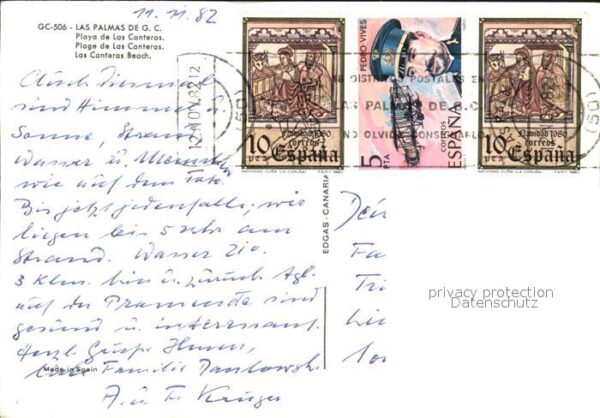 11.11.82
GC-506 - LAS PALMAS DE G. C.
Playa de Las Canteras.
Plage de Las Canteras.
Las Canteras Beach.
Auch diesmal
sind Himmel u.
Sonne, Strand
Wasser u. Menschen
wie auf dem Foto.
Bis jetzt jedenfalls, wir
liegen bis 5 Uhr am
Strand. Wasser 21°.
3 Klm. hin u. zurück tgl.
auf der Promenade sind
gesund u. interessant.
Herzl. Grüße Ihnen,
Familie
A. u. F. Krüger
Made in Spain
EDGAS-CANARIA
12 NOV 82 12
DISTR POSTALES EN
LAS PALMAS DE G.C.
NO OLVIDE CONSIGNARLO
10
PTA
Navidad 1980
correos
España
NATIVIDAD CUIÑA (LA CORUÑA)
F.N.M.T. 1980
PEDRO VIVES
5
PTA
CORREOS
ESPAÑA
10
PTA
Navidad 1980
correos
España
NATIVIDAD CUIÑA (LA CORUÑA)
F.N.M.T. 1980
privacy protection
Datenschutz